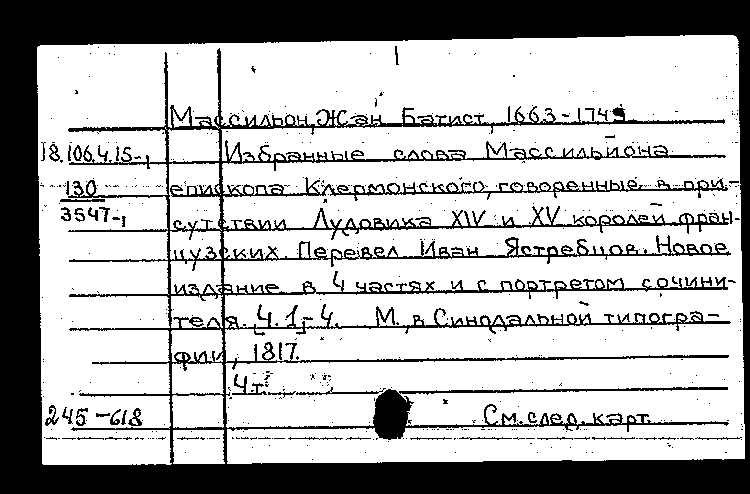 Массильон, Жан Батист, 1663-174
18.106.4.15-1 Избранные слова Массильйона
130 епископа Клермонского, говоренные в при-
3547-1 сутствии Лудовика XIV и XV королей фран-
цузских. Перевел Иван Ястребцов. Новое
издание в 4 частях и с портретом сочини-
теля. Ч. 1-4. М., в Синодальной типогра-
фии, 1817.
4 т.
245-618 См. след. карт.